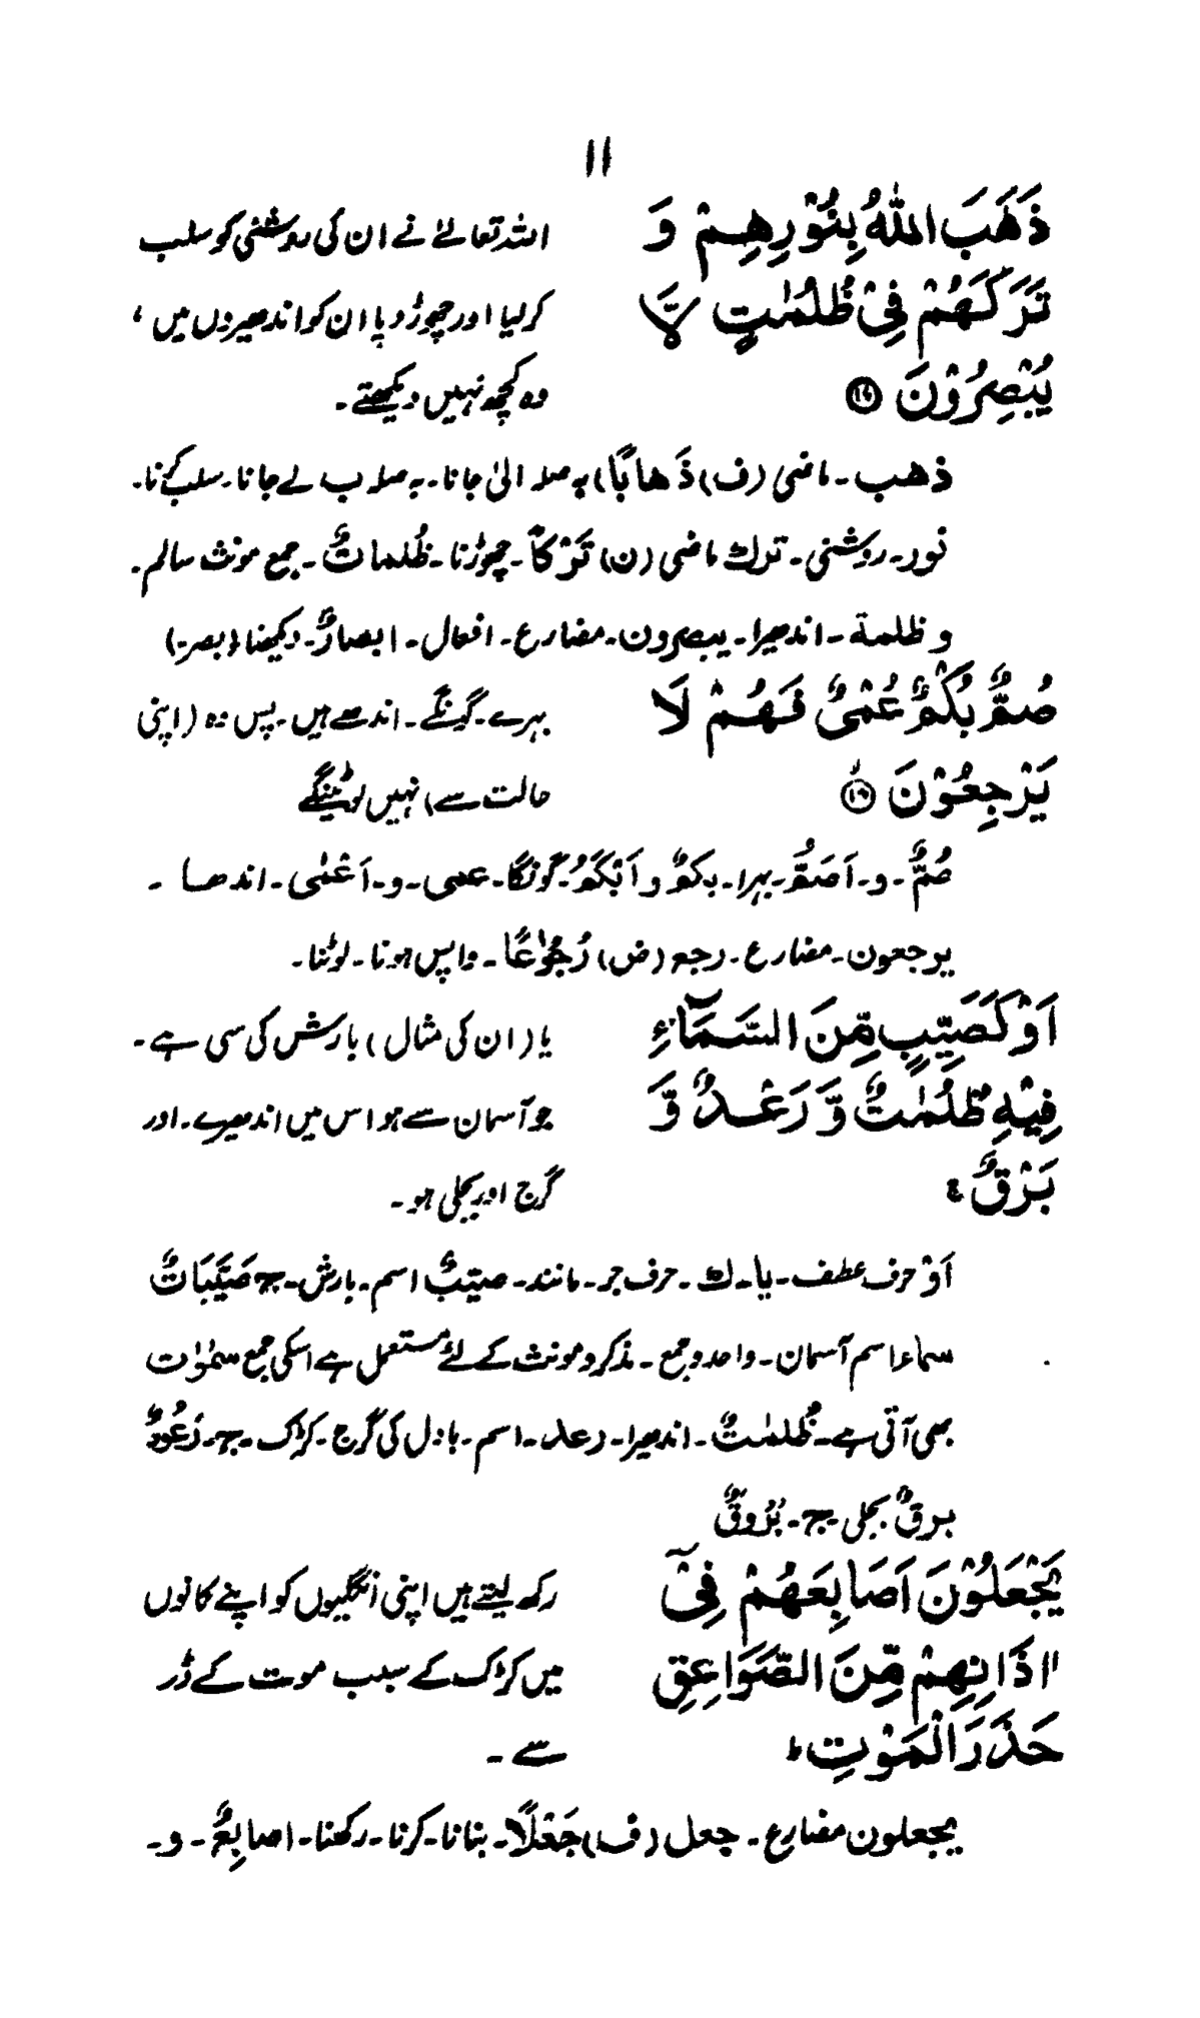 ۱۱
ذَهَبَ اللّٰهُ بِنُوْرِهِمْ وَ اللہ تعالےٰ نے ان کی روشنی کو سلب
تَرَكَهُمْ فِيْ ظُلُمٰتٍ لَّا کرلیا اور چھوڑ دیا ان کو اندھیروں میں ،
يُبْصِرُوْنَ ⑰ وہ کچھ نہیں دیکھتے ۔
ذھب ۔ ماضی (ف) ذَھابًا) بہ صلہ الیٰ جانا ۔ بہ صلہ ب لے جانا ۔ سلب کرنا ۔
نور ۔ روشنی ۔ ترك ماضی (ن) تَرْكاً ۔ چھوڑنا ۔ ظُلماتٌ ۔ جمع مونث سالم ۔
و ظلمة ۔ اندھیرا ۔ یبصرون ۔ مضارع ۔ افعال ۔ ابصارٌ ۔ دیکھنا (بصر ۔)
صُمٌّۢ بُكْمٌ عُمْيٌ فَهُمْ لَا بہرے ۔ گونگے ۔ اندھے ہیں ۔ پس وہ (اپنی
يَرْجِعُوْنَ ⑱ۙ حالت سے) نہیں لوٹینگے
صُمٌّ ۔ و ۔ اَصَمُّ ۔ بہرا ۔ بکمٌ و اَبْکَمُ ۔ گونگا ۔ عمی ۔ و ۔ اَعْمٰی ۔ اندھا ۔
یرجعون ۔ مضارع ۔ رجع (ض) رُجُوْعًا ۔ واپس ہونا ۔ لوٹنا ۔
اَوْ كَصَيِّبٍ مِّنَ السَّمَآءِ یا (ان کی مثال) بارش کی سی ہے ۔
فِيْهِ ظُلُمٰتٌ وَّ رَعْدٌ وَّ جو آسمان سے ہو اس میں اندھیرے ۔ اور
بَرْقٌ ۚ گرج اور بجلی ہو ۔
اَوْ حرف عطف ۔ یا ۔ ك ۔ حرف جر ۔ مانند ۔ صیّبٌ اسم ۔ بارش ۔ ج صَیِّبَاتٌ
سماء اسم آسمان ۔ واحد و جمع ۔ مذکر و مونث کے لئے مستعمل ہے اسکی جمع سمٰوٰت
بھی آتی ہے ۔ ظُلمٰتٌ ۔ اندھیرا ۔ رعد ۔ اسم ۔ بادل کی گرج ۔ کڑک ۔ ج ۔ رَعُودٌ
برقٌ بجلی ج ۔ بُرُوقٌ
يَجْعَلُوْنَ اَصَابِعَهُمْ فِيْٓ رکھ لیتے ہیں اپنی انگلیوں کو اپنے کانوں
اٰذَانِهِمْ مِّنَ الصَّوَاعِقِ میں کڑک کے سبب موت کے ڈر
حَذَرَ الْمَوْتِ ؕ سے ۔
یجعلون مضارع ۔ جعل (ف) جَعْلًا ۔ بنانا ۔ کرنا ۔ رکھنا ۔ اصابِعٌ ۔ و ۔